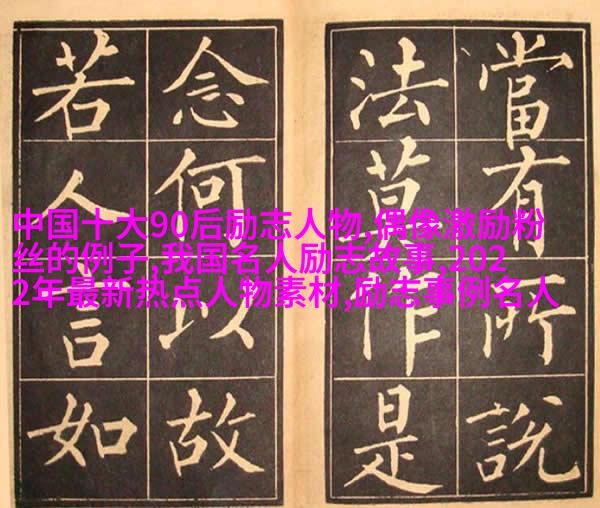 中国十大90后励志人物,偶像激励粉
丝的例子,我国名人励志故事,202
2年最新热点人物素材,励志事例名人
當有所說
法莫作是
念何以故
若人言如